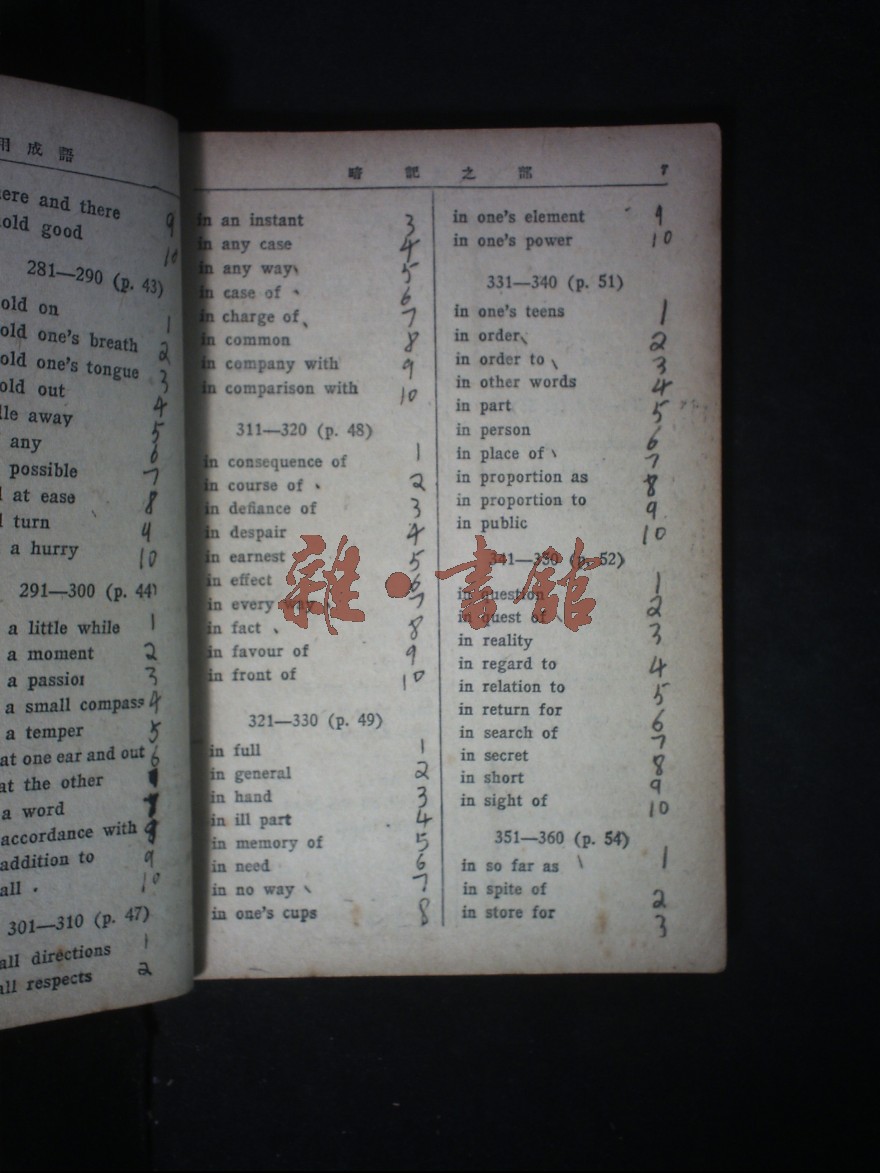 用成語
ere and there 9
old good 10
281—290 (p. 43)
old on 1
old one's breath 2
old one's tongue 3
old out 4
lle away 5
any 6
possible 7
at ease 8
turn 9
a hurry 10
291—300 (p. 44)
a little while 1
a moment 2
a passion 3
a small compass 4
a temper 5
at one ear and out 6
at the other
a word 7
accordance with 8
addition to 9
all 10
301—310 (p. 47)
all directions 1
all respects 2
暗記之部 7
in an instant 3
in any case 4
in any way 5
in case of 6
in charge of 7
in common 8
in company with 9
in comparison with 10
311—320 (p. 48)
in consequence of 1
in course of 2
in defiance of 3
in despair 4
in earnest 5
in effect 6
in every way 7
in fact 8
in favour of 9
in front of 10
321—330 (p. 49)
in full 1
in general 2
in hand 3
in ill part 4
in memory of 5
in need 6
in no way 7
in one's cups 8
in one's element 9
in one's power 10
331—340 (p. 51)
in one's teens 1
in order 2
in order to 3
in other words 4
in part 5
in person 6
in place of 7
in proportion as 8
in proportion to 9
in public 10
341—350 (p. 52)
in question 1
in quest of 2
in reality 3
in regard to 4
in relation to 5
in return for 6
in search of 7
in secret 8
in short 9
in sight of 10
351—360 (p. 54)
in so far as 1
in spite of 2
in store for 3
雜·書館